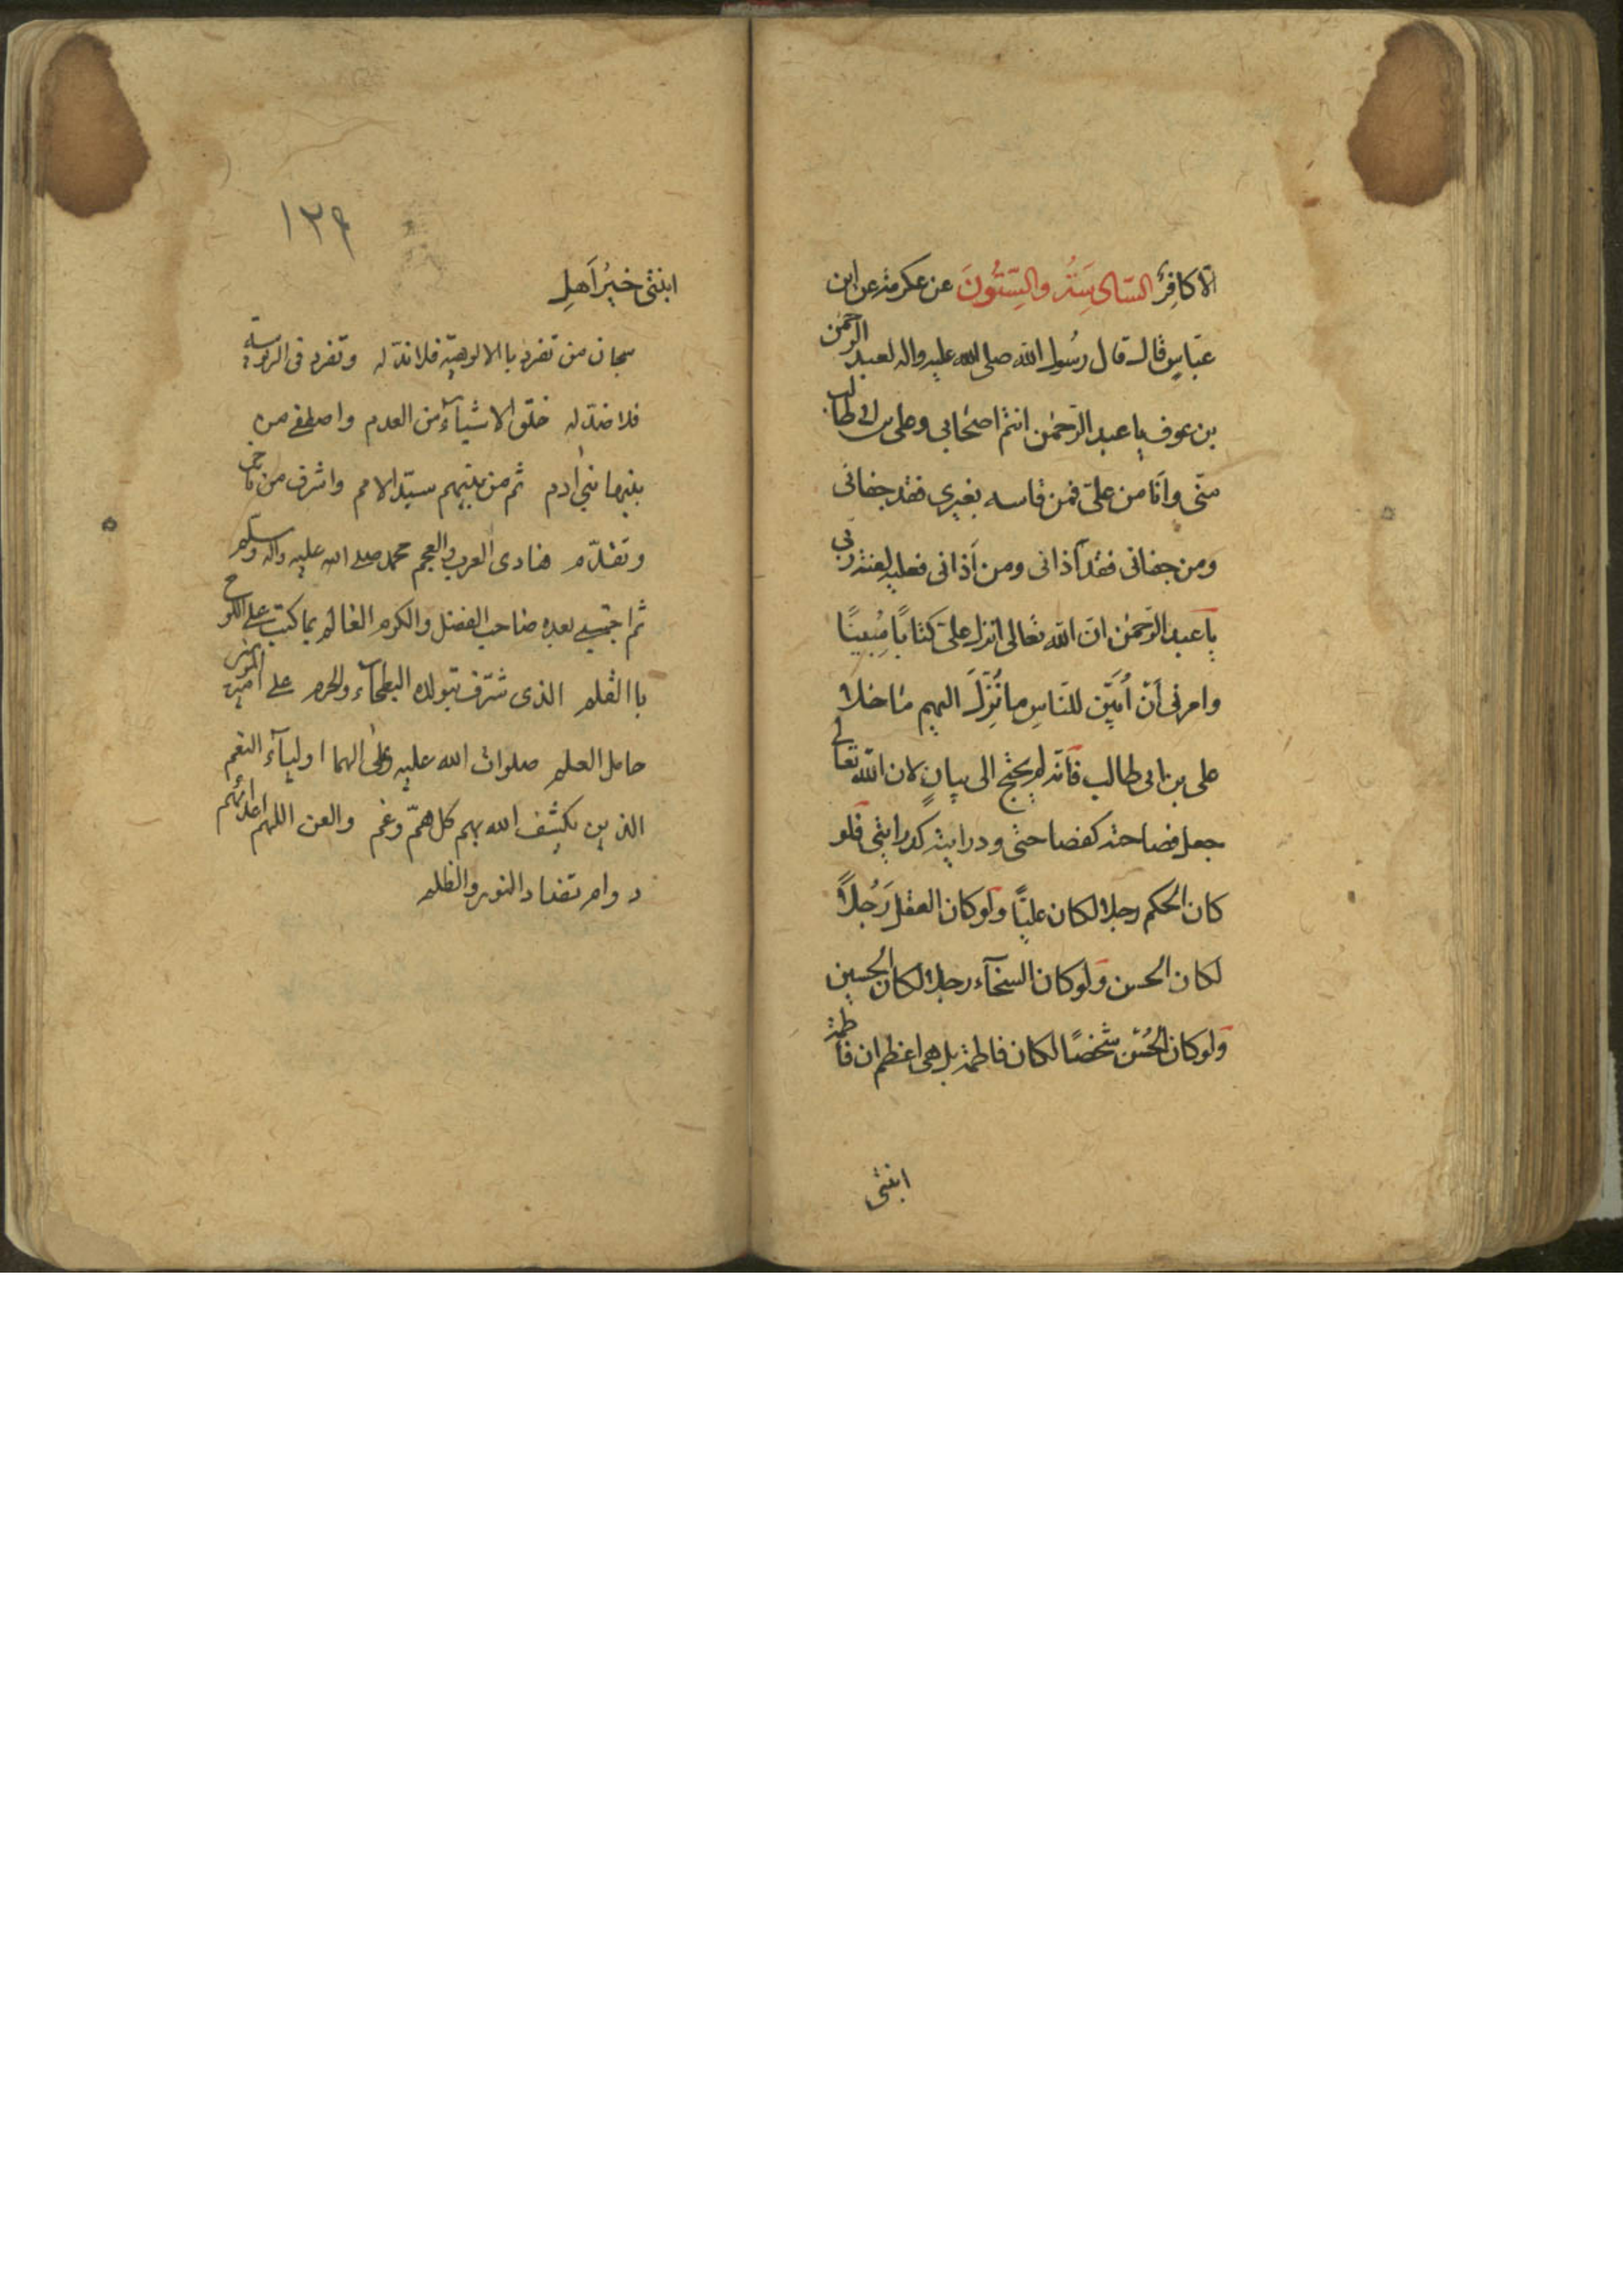 الّا كافِرٌ السّادِسَةُ والسِتُّونَ عن عكرمة عن ابن
عبّاسٍ قال قال رسُول الله صلى الله عليه واله لعبد الرحمن
بن عوف يا عبد الرّحمٰن انتم اصحابي وعلى بن ابى طالب
منّى وانَا من علىّ فمن قاسه بغيرى فقد جفانى
ومن جفانى فقد آذانى ومن آذانى فعليه لعنة ربى
يا عبد الرّحمٰن انّ الله تعالى انزل علىّ كتابًا مُبينًا
وامرنى أنْ أُبَيّن للنّاسِ ما نُزِّلَ اليهم ما خلا
على بن ابى طالب فانّه لم يحتج الى بيانٍ لان الله تعالى
جعل فصاحته كفصاحتى ودرايته كدرايتى فلو
كان الحكم رجلا لكان عليّا ولو كان العقل رَجُلاً
لكان الحسن ولو كان السخآء رجلا لكان الحسين
ولو كان الحُسْن شخصًا لكان فاطمة بل هى اعظم ان فاطمة
ابنتى
١٣٩
ابنتى خيرُ اَهلِ
سبحان من تفرد با الالوهيّة فلا ندّ له وتفرد فى الربوبية
فلا ضدّ له خلق الاشيآء من العدم واصطفى من
بينها بنى ادم ثم من بينهم سيّد الامم واشرف من تاخر
وتقدّم هادى العرب والعجم محمد صلى الله عليه واله وسلم
ثم اجتبى بعده صاحب الفضل والكرم العالم بما كتب على اللوح
با القلم الذى شرّف بتولده البطحآء والحرم على امير المؤمنين
حامل العلم صلوات الله عليه وعلى الهما اولیآء النعم
الذين يكشف الله بهم كل همّ وغم والعن اللهم اعدائهم
دوام تضاد النور والظلم